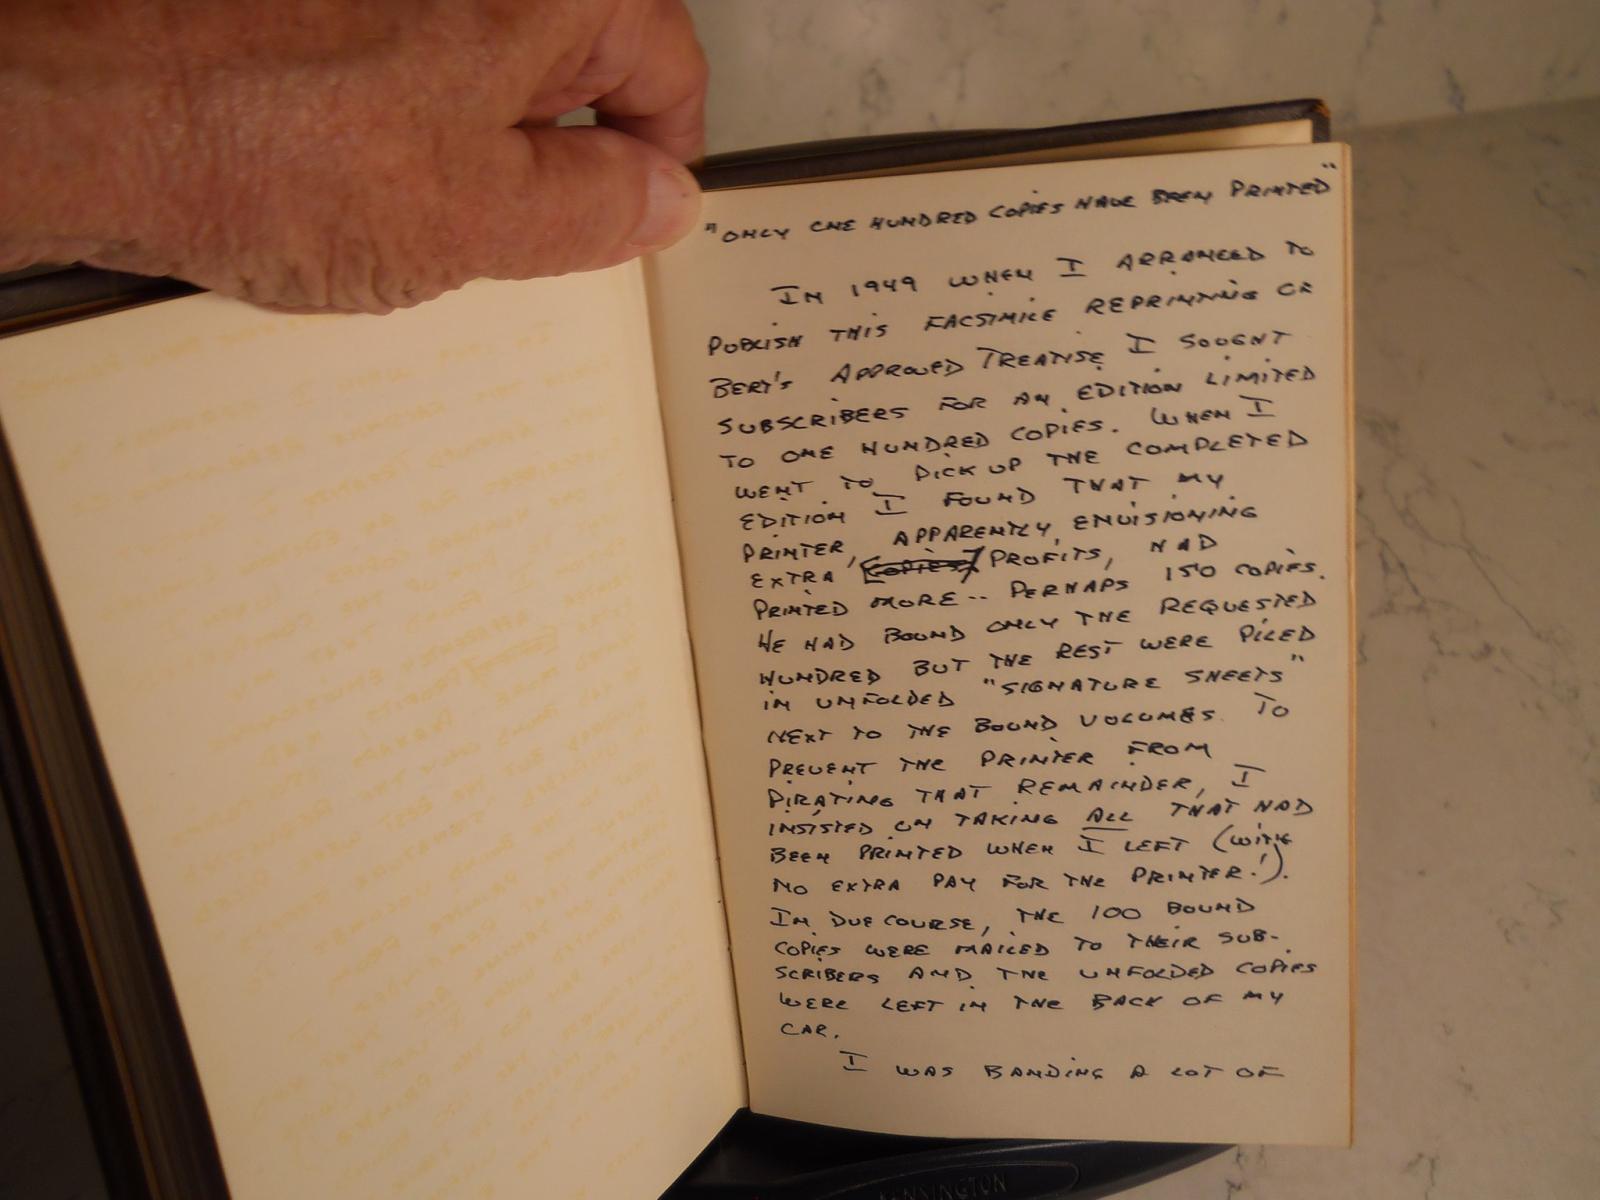 "ONLY ONE HUNDRED COPIES HAVE BEEN PRINTED"
IN 1949 WHEN I ARRANGED TO
PUBLISH THIS FACSIMILE REPRINTING OF
BERT'S APPROVED TREATISE I SOUGHT
SUBSCRIBERS FOR AN EDITION LIMITED
TO ONE HUNDRED COPIES. WHEN I
WENT TO PICK UP THE COMPLETED
EDITION I FOUND THAT MY
PRINTER, APPARENTLY, ENVISIONING
EXTRA COPIES PROFITS, HAD
PRINTED MORE -- PERHAPS 150 COPIES.
HE HAD BOUND ONLY THE REQUESTED
HUNDRED BUT THE REST WERE PILED
IN UNFOLDED "SIGNATURE SHEETS"
NEXT TO THE BOUND VOLUMES. TO
PREVENT THE PRINTER FROM
PIRATING THAT REMAINDER, I
INSISTED ON TAKING ALL THAT HAD
BEEN PRINTED WHEN I LEFT (WITH
NO EXTRA PAY FOR THE PRINTER!).
IN DUE COURSE, THE 100 BOUND
COPIES WERE MAILED TO THEIR SUB-
SCRIBERS AND THE UNFOLDED COPIES
WERE LEFT IN THE BACK OF MY
CAR.
I WAS BANDING A LOT OF
KENSINGTON